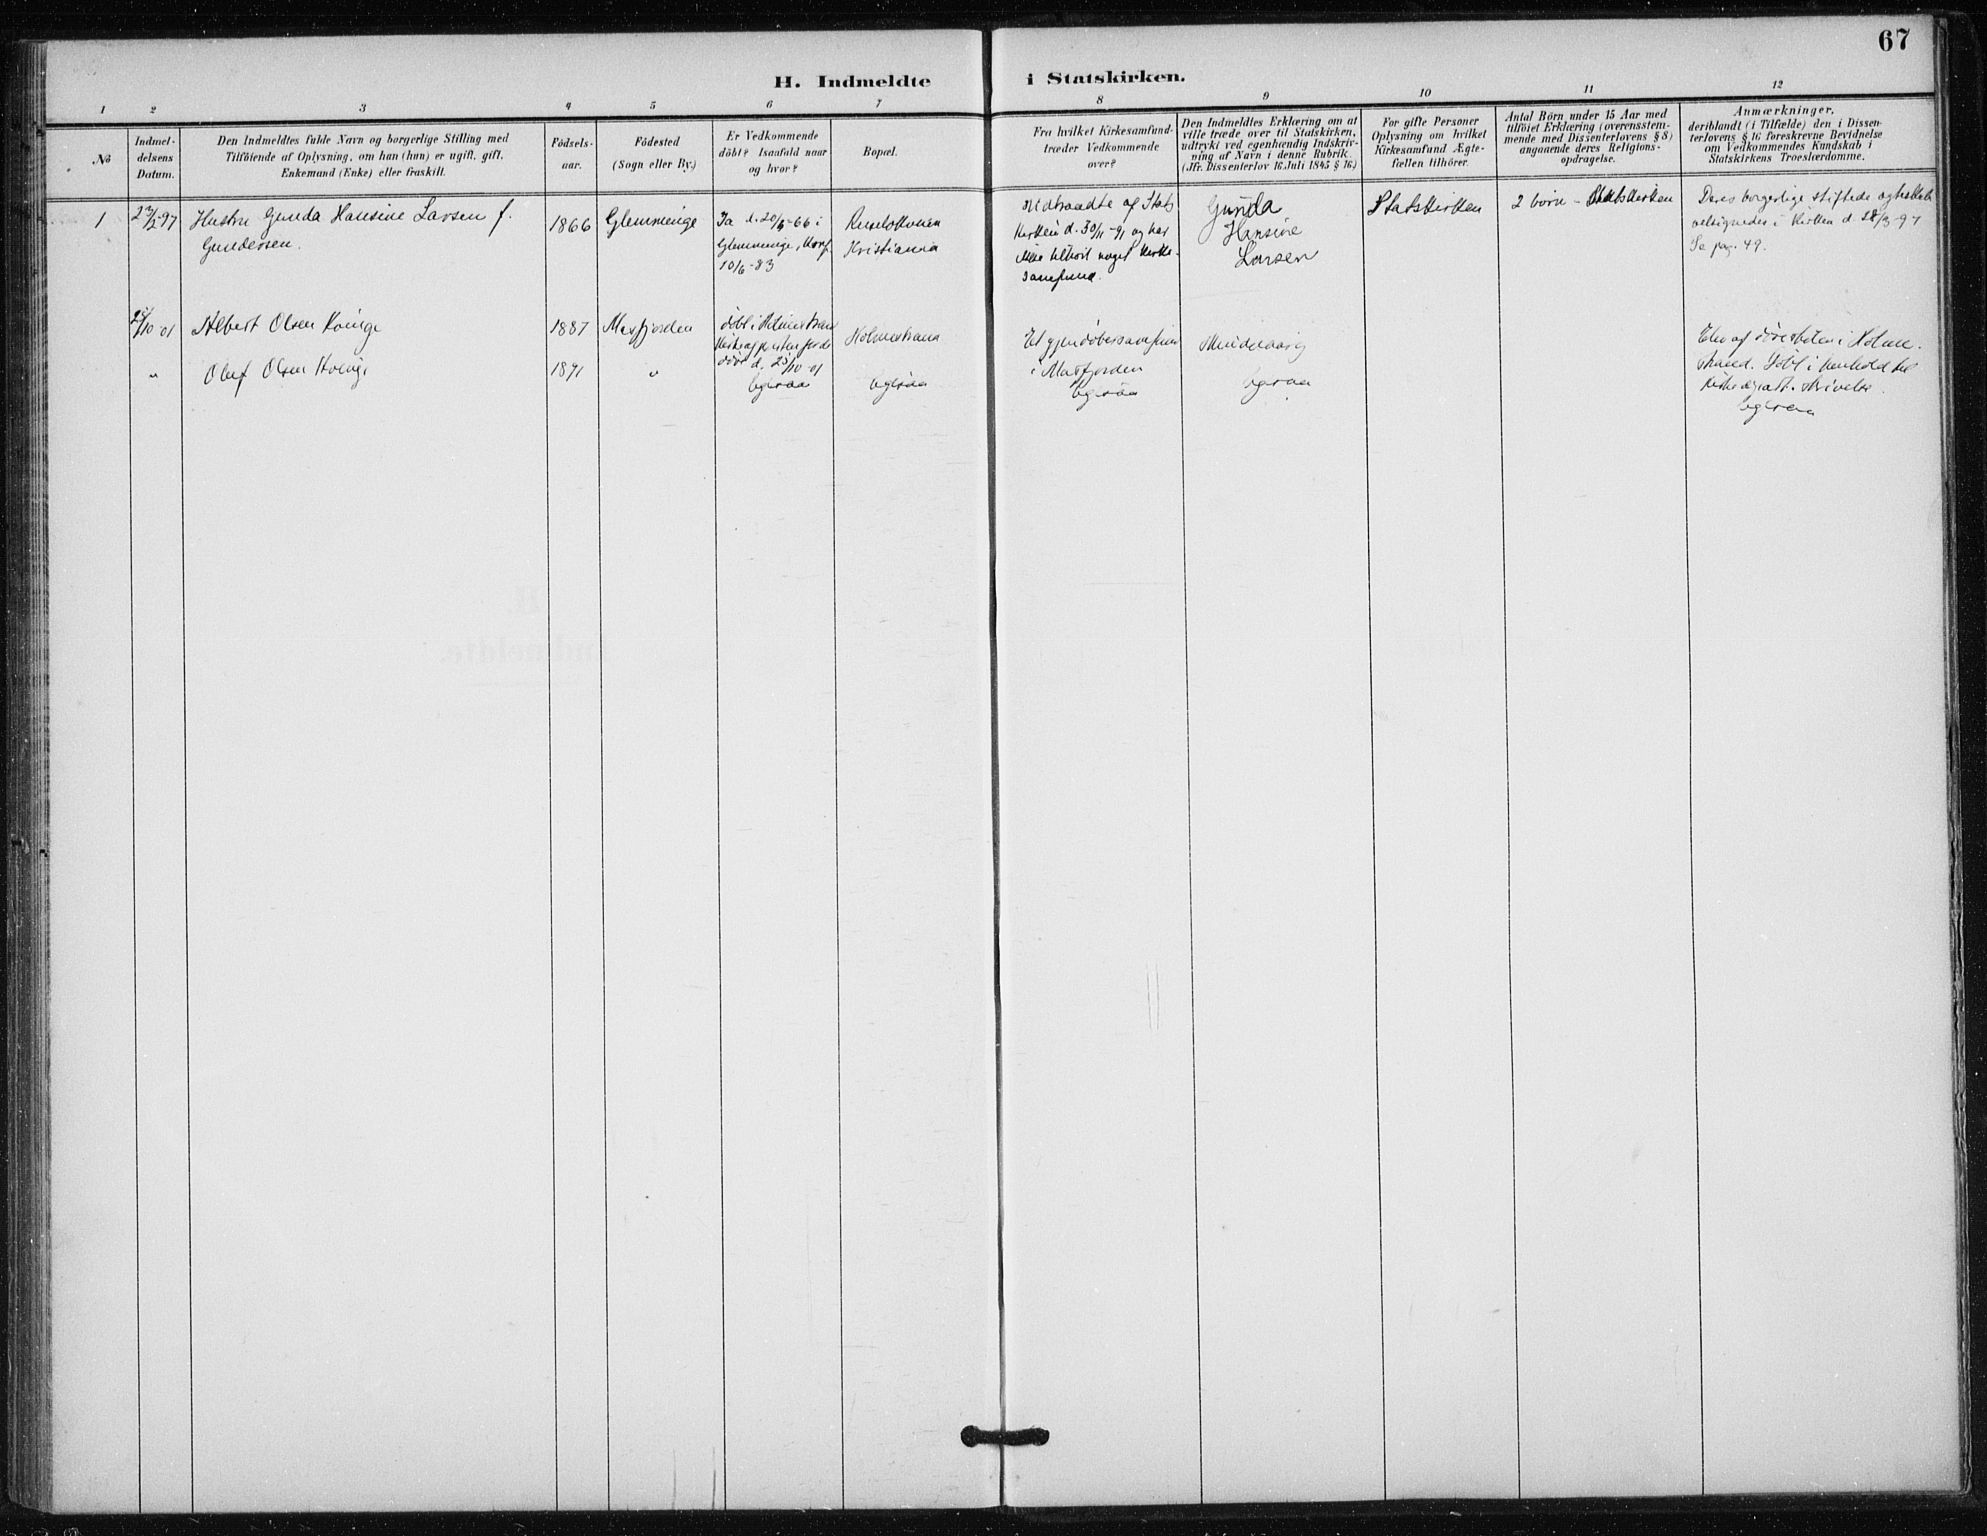 67
H. Indmeldte i Statskirken.
1 2 3 4 5 6 7 8 9 10 11 12
No
Indmel-
delsens
Datum.
Den Indmeldtes fulde Navn og borgerlige Stilling med
Tilföiende af Oplysning, om han (hun) er ugift, gift,
Enkemand (Enke) eller fraskilt.
Födsels-
aar.
Födested
(Sogn eller By.)
Er Vedkommende
döbt? Isaafald naar
og hvor?
Bopæl.
Fra hvilket Kirkesamfund
træder Vedkommende
over?
Den Indmeldtes Erklæring om at
ville træde over til Statskirken,
udtrykt ved egenhændig Indskriv-
ning af Navn i denne Rubrik.
(Jfr. Dissenterlov 16 Juli 1845 § 16)
For gifte Personer
Oplysning om hvilket
Kirkesamfund Ægte-
fællen tilhörer.
Antal Börn under 15 Aar med
tilföiet Erklæring (overensstem-
mende med Dissenterlovens § 8)
angaaende deres Religions-
opdragelse.
Anmærkninger,
deriblandt (i Tilfælde) den i Dissen-
terlovens § 16 foreskrevne Bevidnelse
om Vedkommendes Kundskab i
Statskirkens Troeslærdomme.
1
97
Hustru Gunda Hansine Larsen f.
Gundersen.
1866
Glemminge
Ja d. 20/5-66 i
Glemminge, Konf.
10/6-83
Kristiania
Udtraadte af Stats
kirken d. 30/11-91 og har
ikke tilhört noget kirke-
samfund.
Gunda
Hansine
Larsen
Statskirken
2 börn - Statskirken
Deres borgerlige stiftede
velsignedes i Kirken d. 28/3-97
Se pag. 49.
25/10-01
Albert Olsen
1887
Masfjorden
döbt i Holmestrand
d. 25/10-01
Holmestrand
Et gjendöbersamfund
i Masfjorden
Mindreaarig
Elev af dövescolen i Holme-
strand. Döbt i henhold til
skrivelse.
"
Oluf Olsen
1891
"
ogsaa
ogsaa
ogsaa
ogsaa
ogsaa